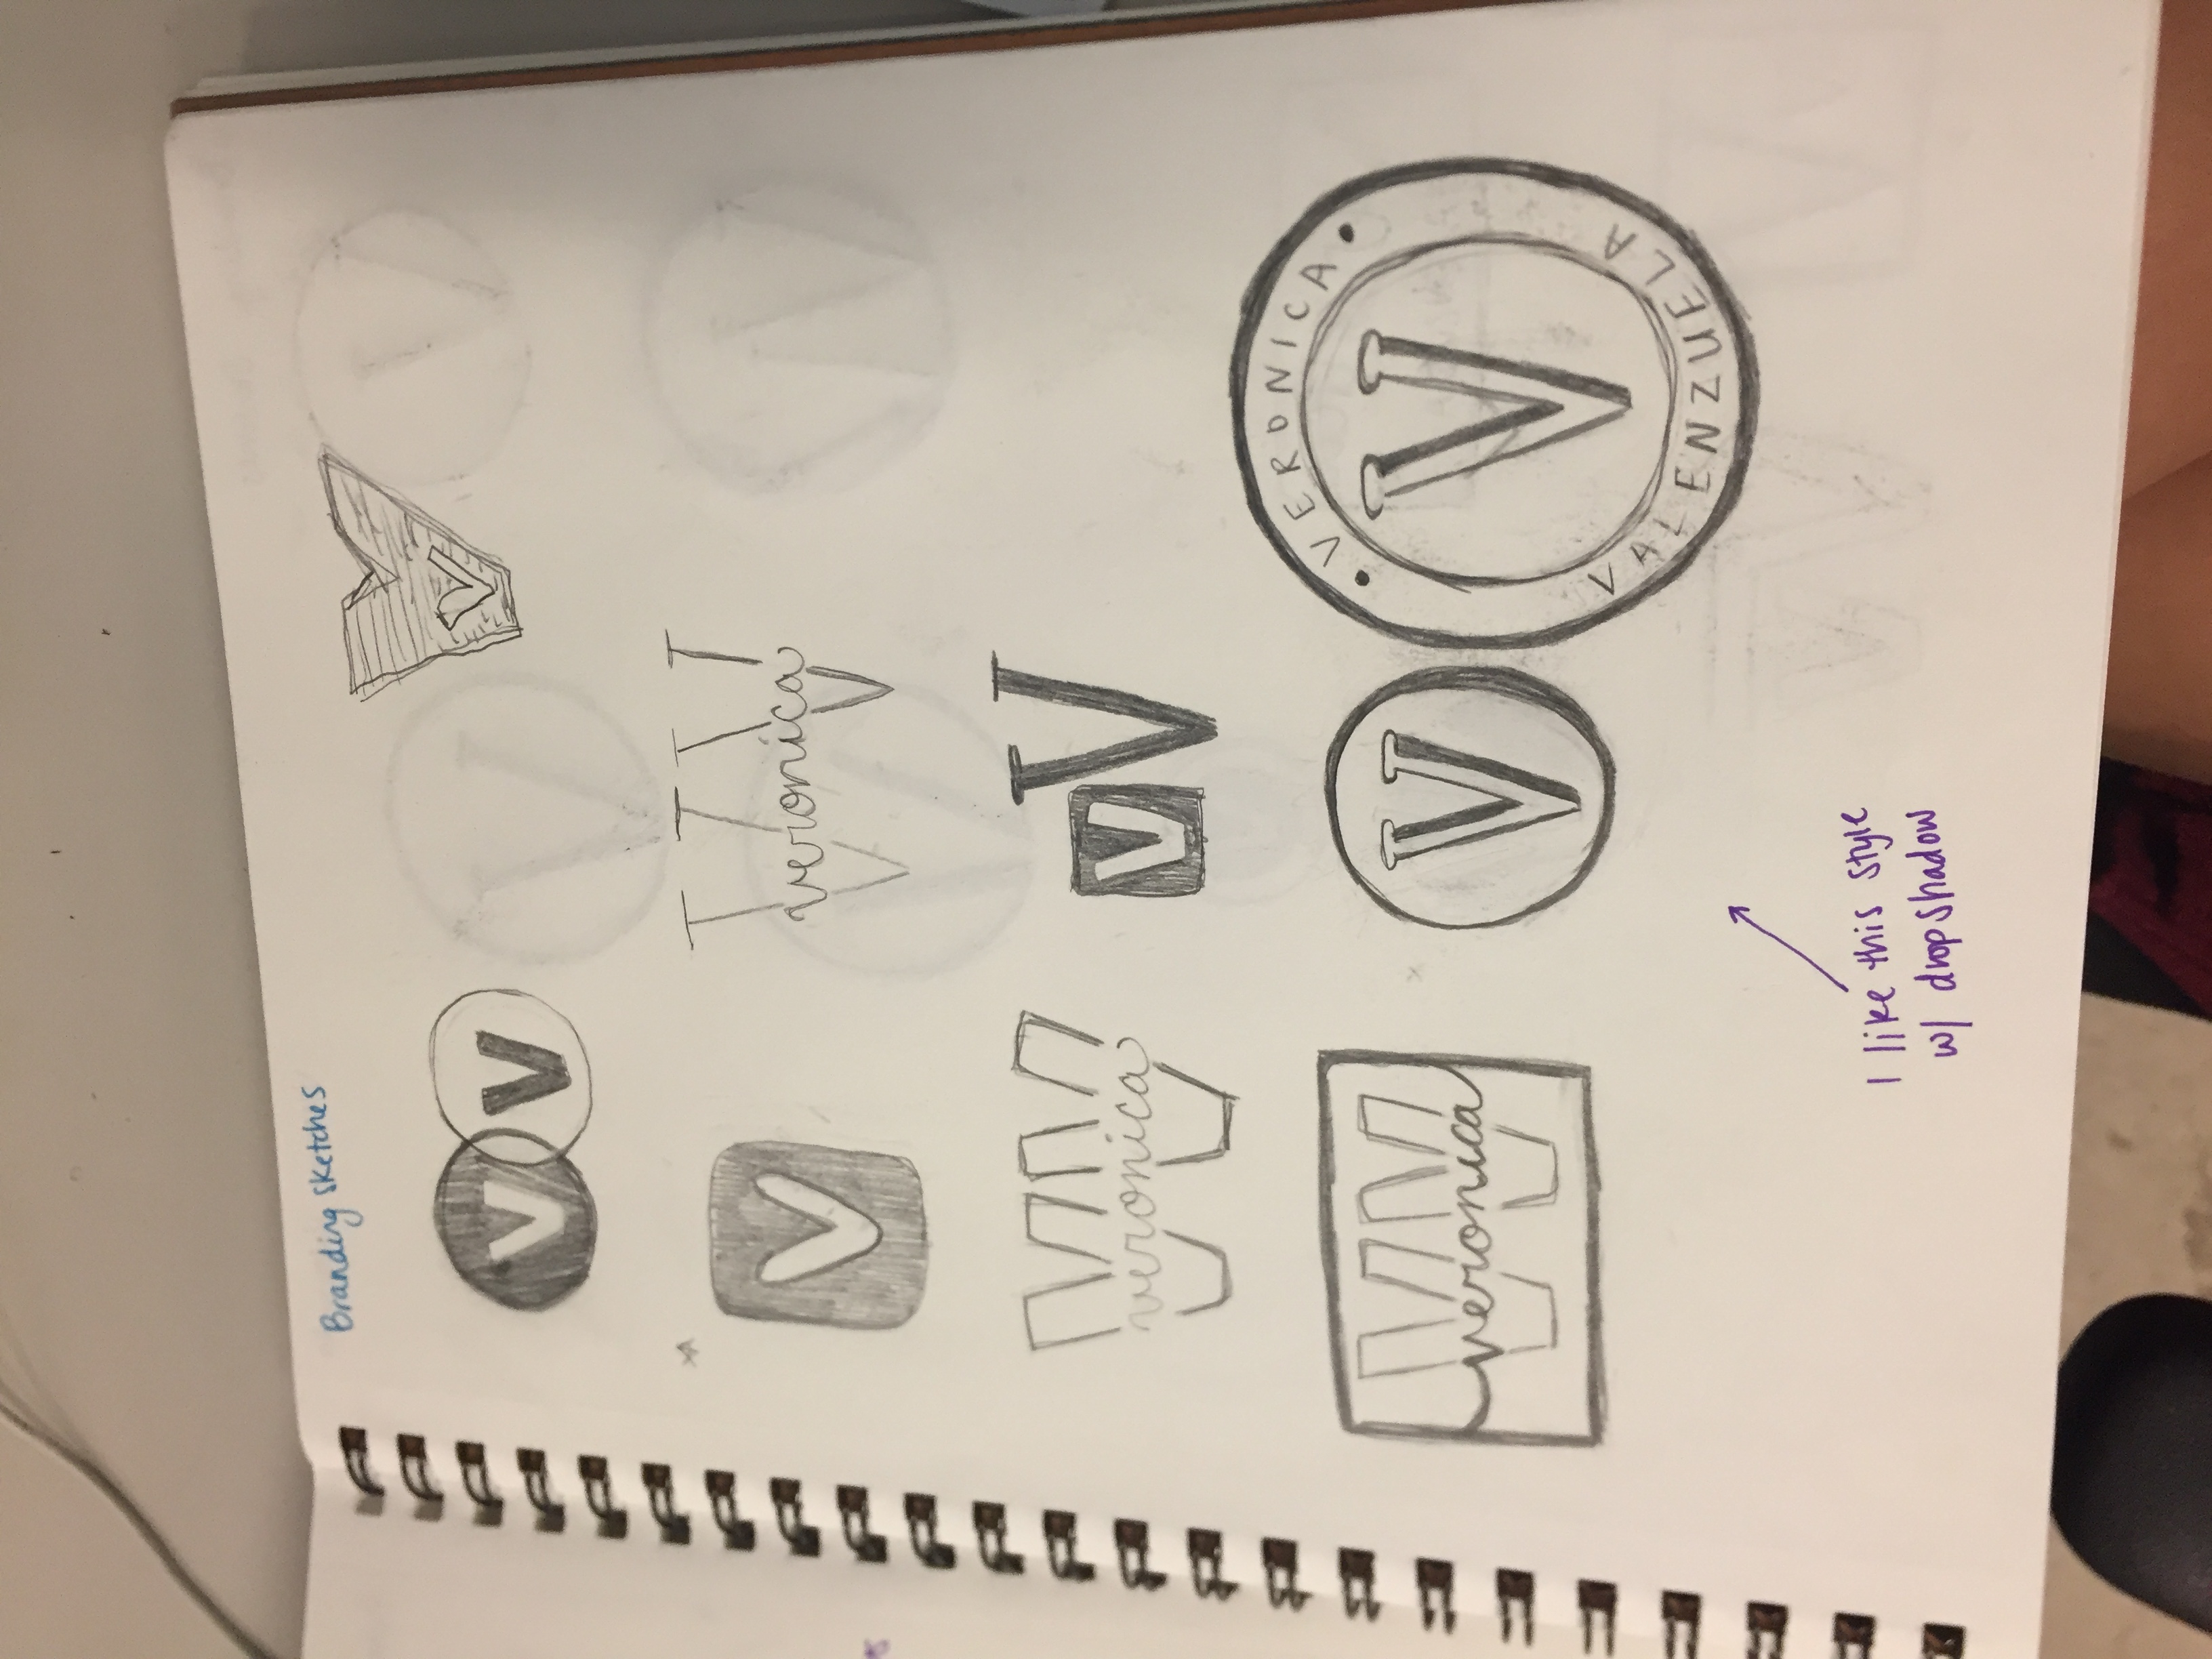 Branding sketches
V V
V
V
V
VV
veronica
VV
veronica
V V
VV
veronica
V
VERONICA
V
VALENZUELA
I like this style
w/ dropshadow